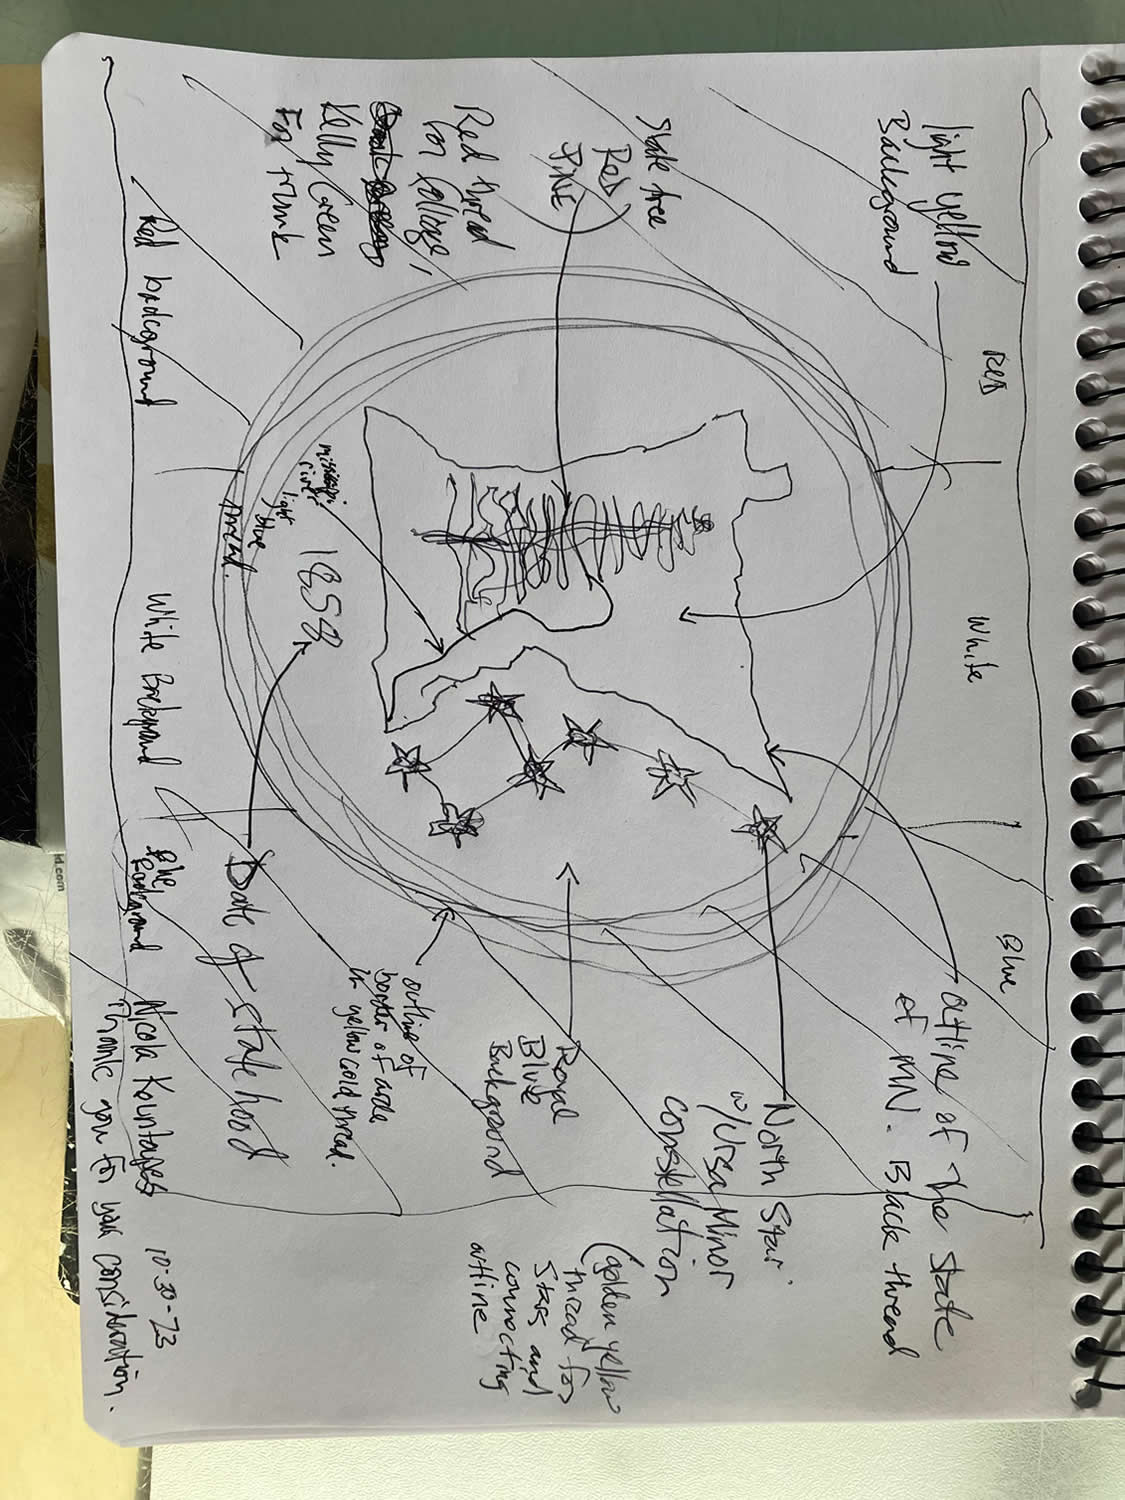 light yellow
Background
RED
White
Blue
outline of the state
of MN. Black thread
State tree
RED
PINE
Red thread
for foliage,
Kelly Green
For trunk
North Star
w/Ursa Minor
constellation
(golden yellow
thread for
stars and
connecting
outline
Royal
Blue
Background
mississippi
river
light
blue
thread.
1858
outline of
border of circle
in yellow gold thread.
Date of statehood
Red background
White Background
Blue
background
Nicola Kountoupes
10-30-23
Thank you for your consideration.
id.com